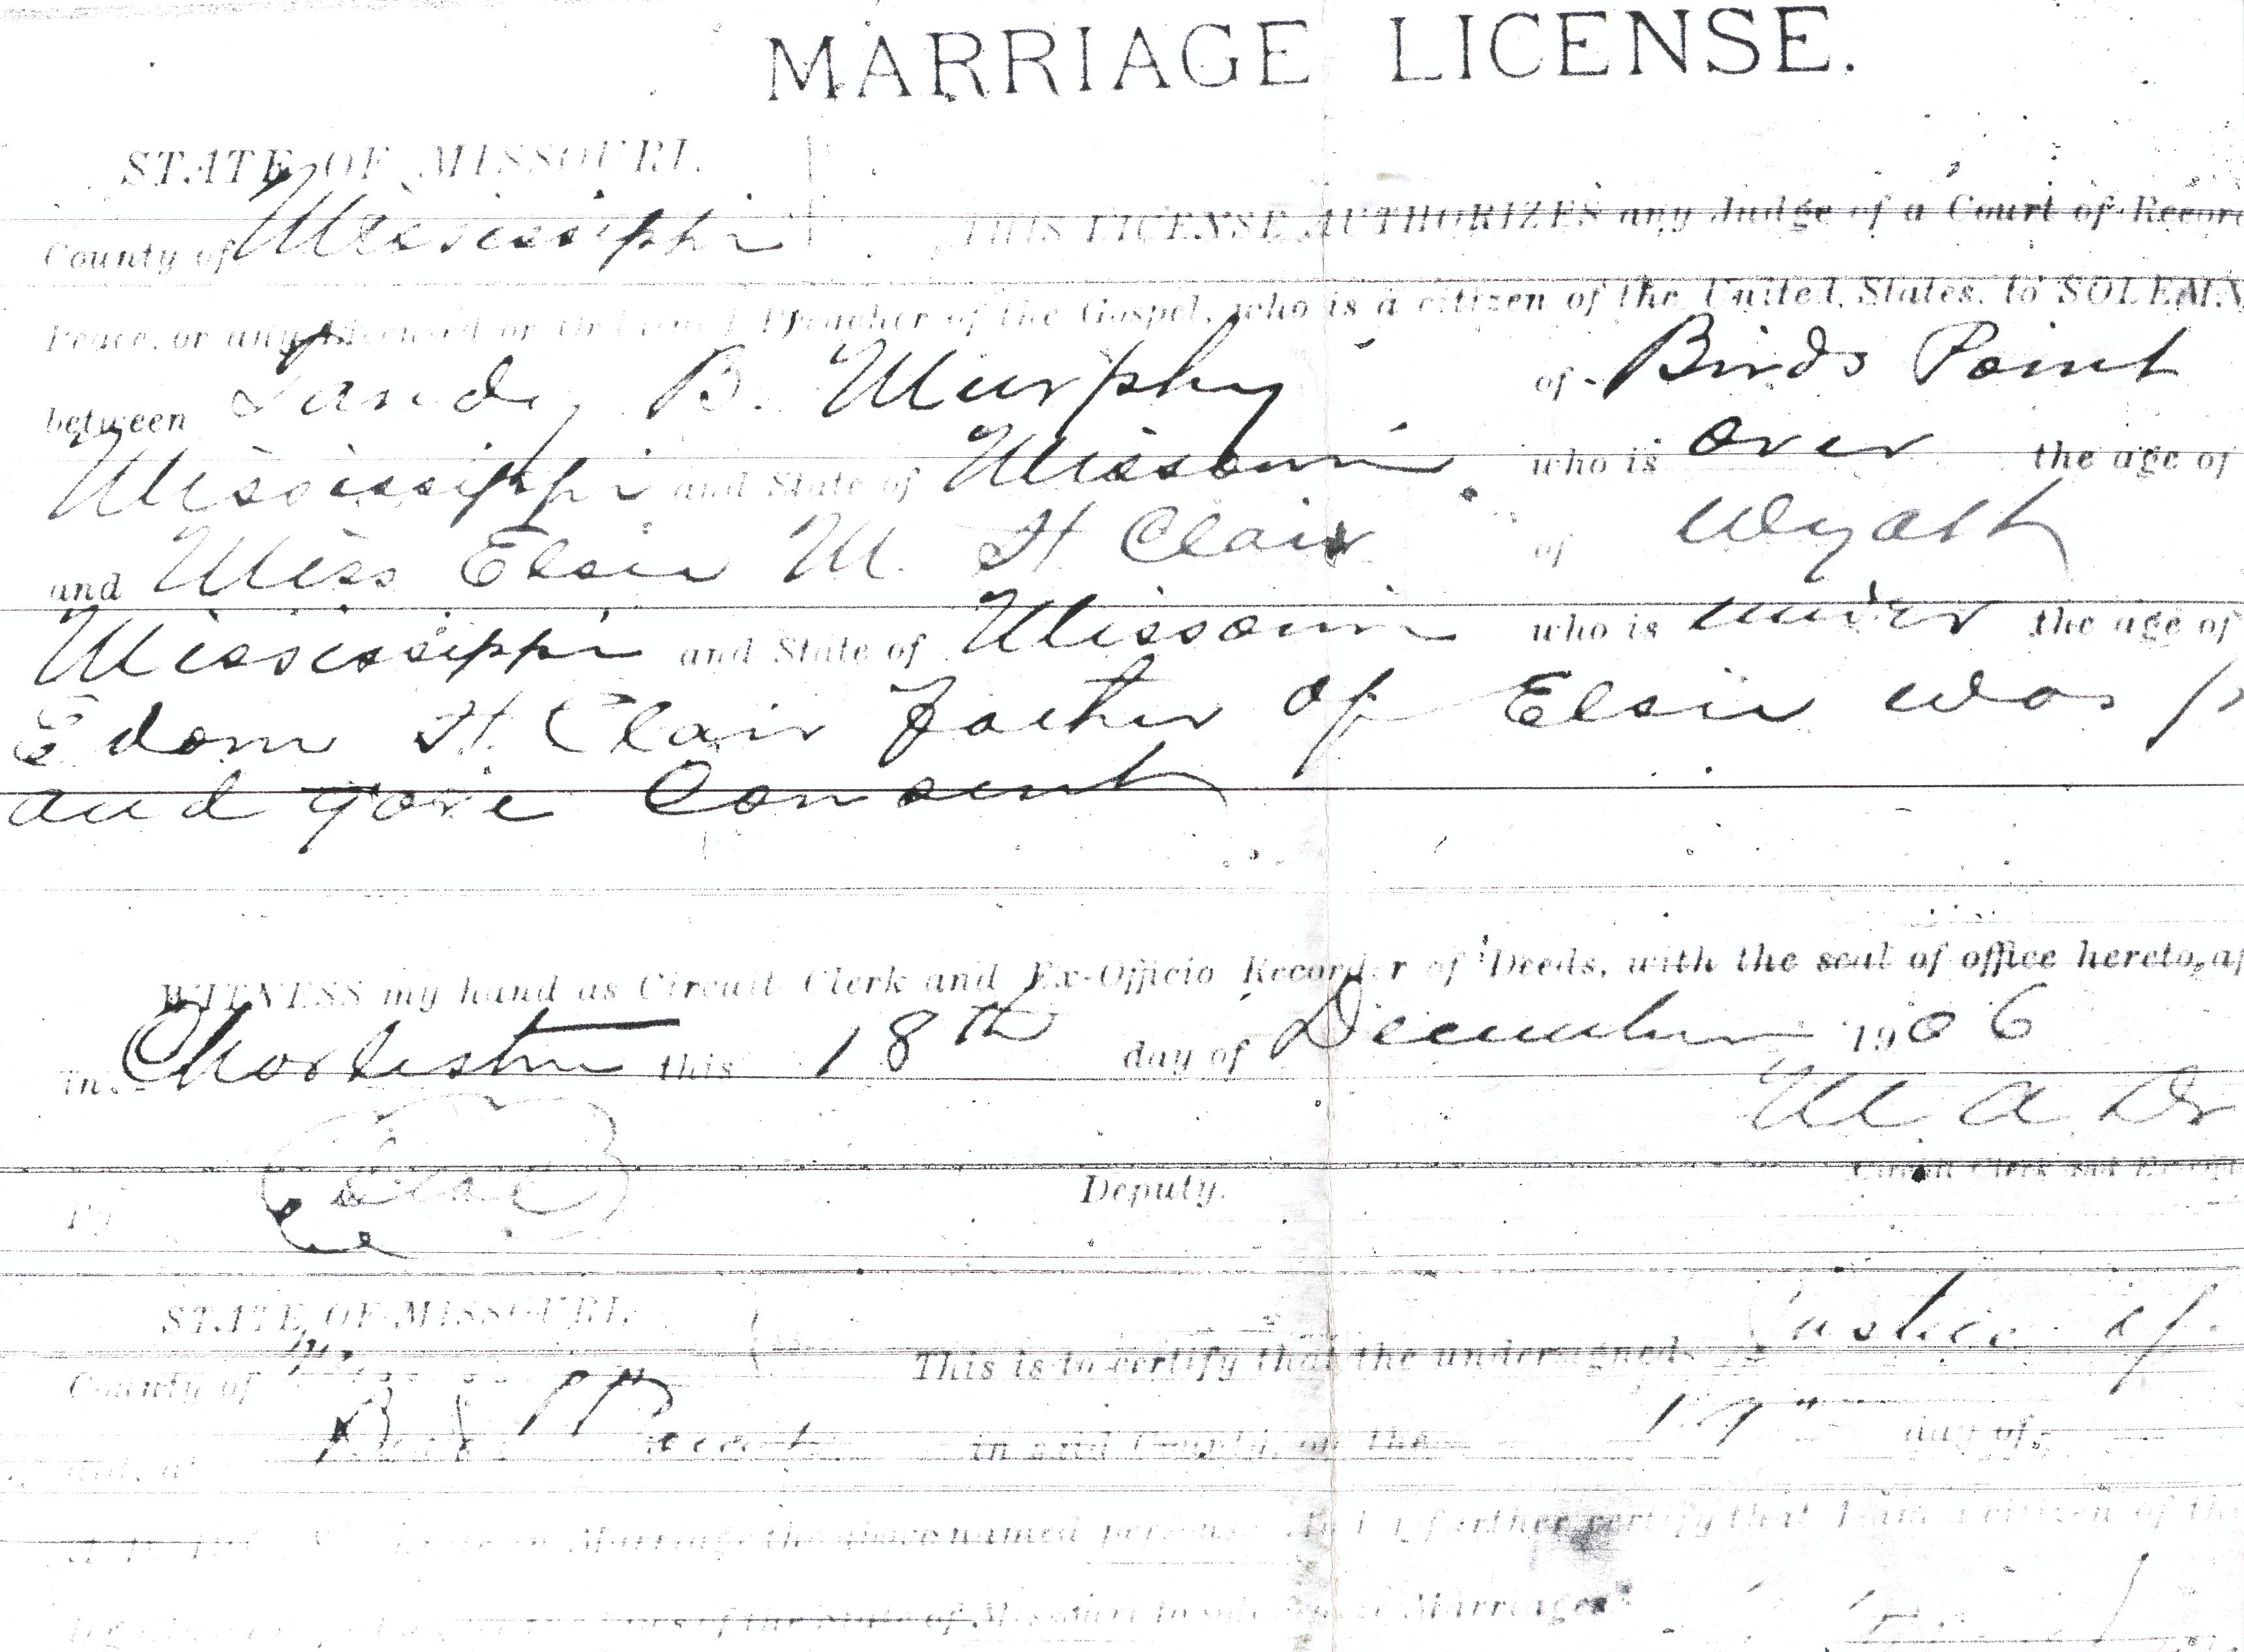 MARRIAGE LICENSE.
STATE OF MISSOURI.
County of Mississippi THIS LICENSE AUTHORIZES any Judge of a Court of Record
Peace, or any Licensed or Ordained Preacher of the Gospel, who is a citizen of the United States, to SOLEMN
between Landy B. Murphy of Birds Point
Mississippi and State of Missouri who is over the age of
and Miss Elsie M. St Clair of Wyatt
Mississippi and State of Missouri who is under the age of
Edom St. Clair father of Elsie was p
and gave Consent
WITNESS my hand as Circuit Clerk and Ex-Officio Recorder of Deeds, with the seal of office hereto, af
in Charleston this 18th day of December 1906
M. A. Dr
Seal Circuit Clerk and
By Deputy.
STATE OF MISSOURI.
County of This is to certify that the undersigned Justice of
in said County, on the day of
Marriage the above named persons further certify that I am a citizen of the
laws of the State of Missouri to Marriages